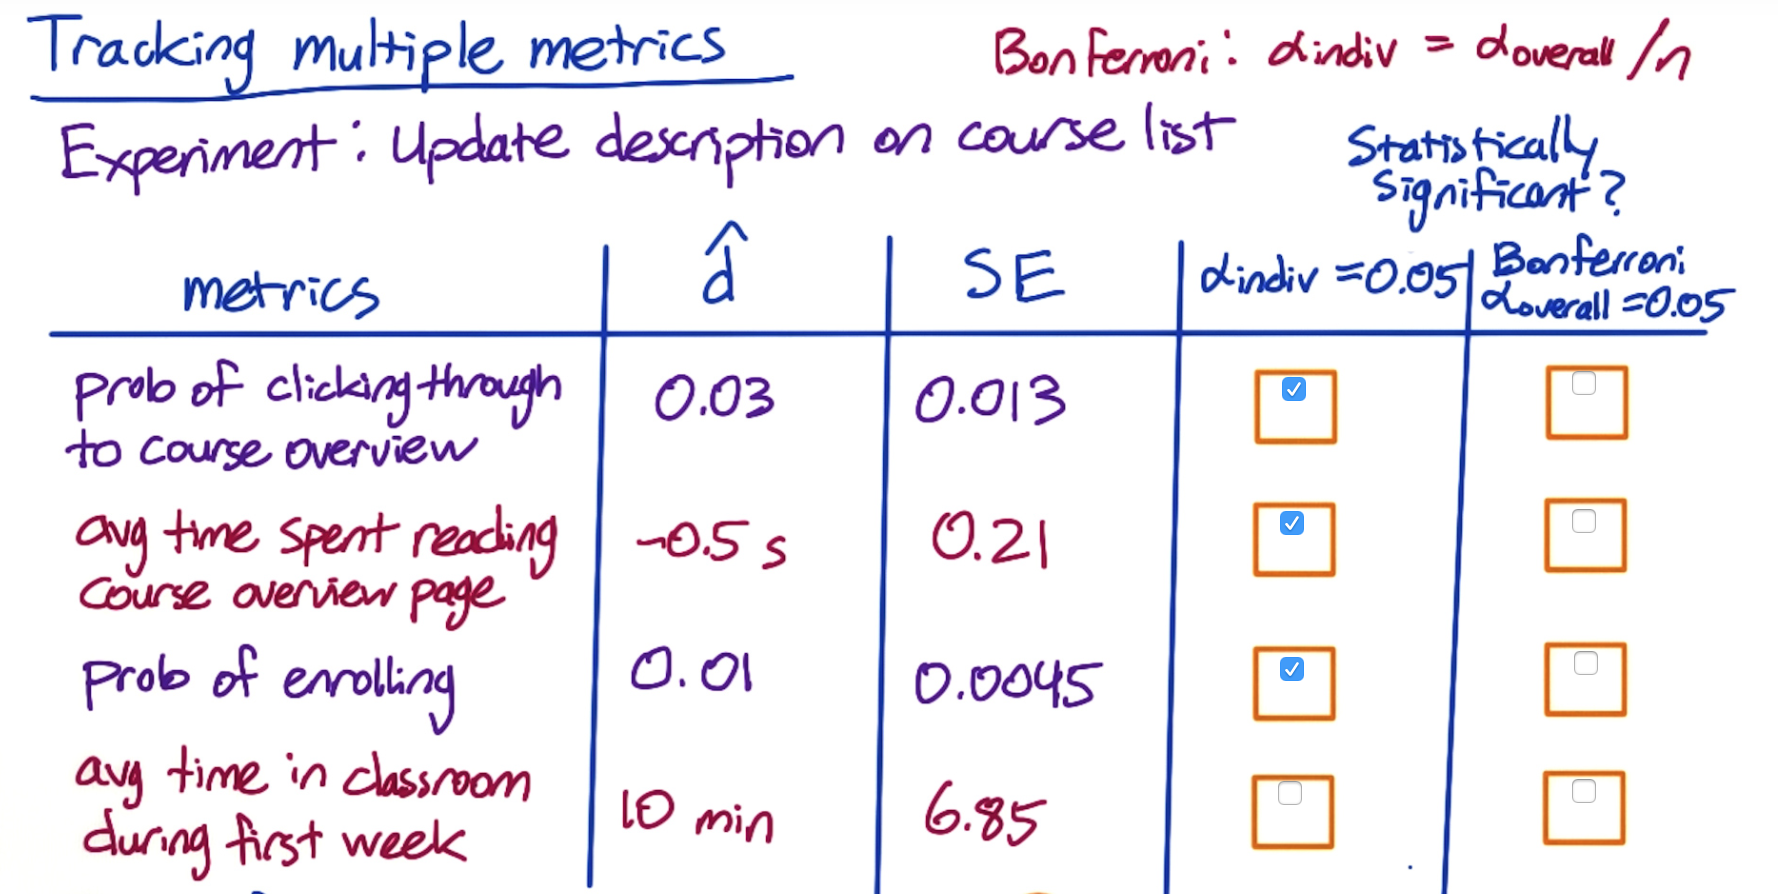 Tracking multiple metrics
Bonferroni: αindiv = αoverall/n
Experiment: Update description on course list
Statistically
significant?
metrics
d̂
SE
αindiv = 0.05
Bonferroni
αoverall = 0.05
prob of clicking through
to course overview
0.03
0.013
avg time spent reading
course overview page
-0.5 s
0.21
prob of enrolling
0.01
0.0045
avg time in classroom
during first week
10 min
6.85